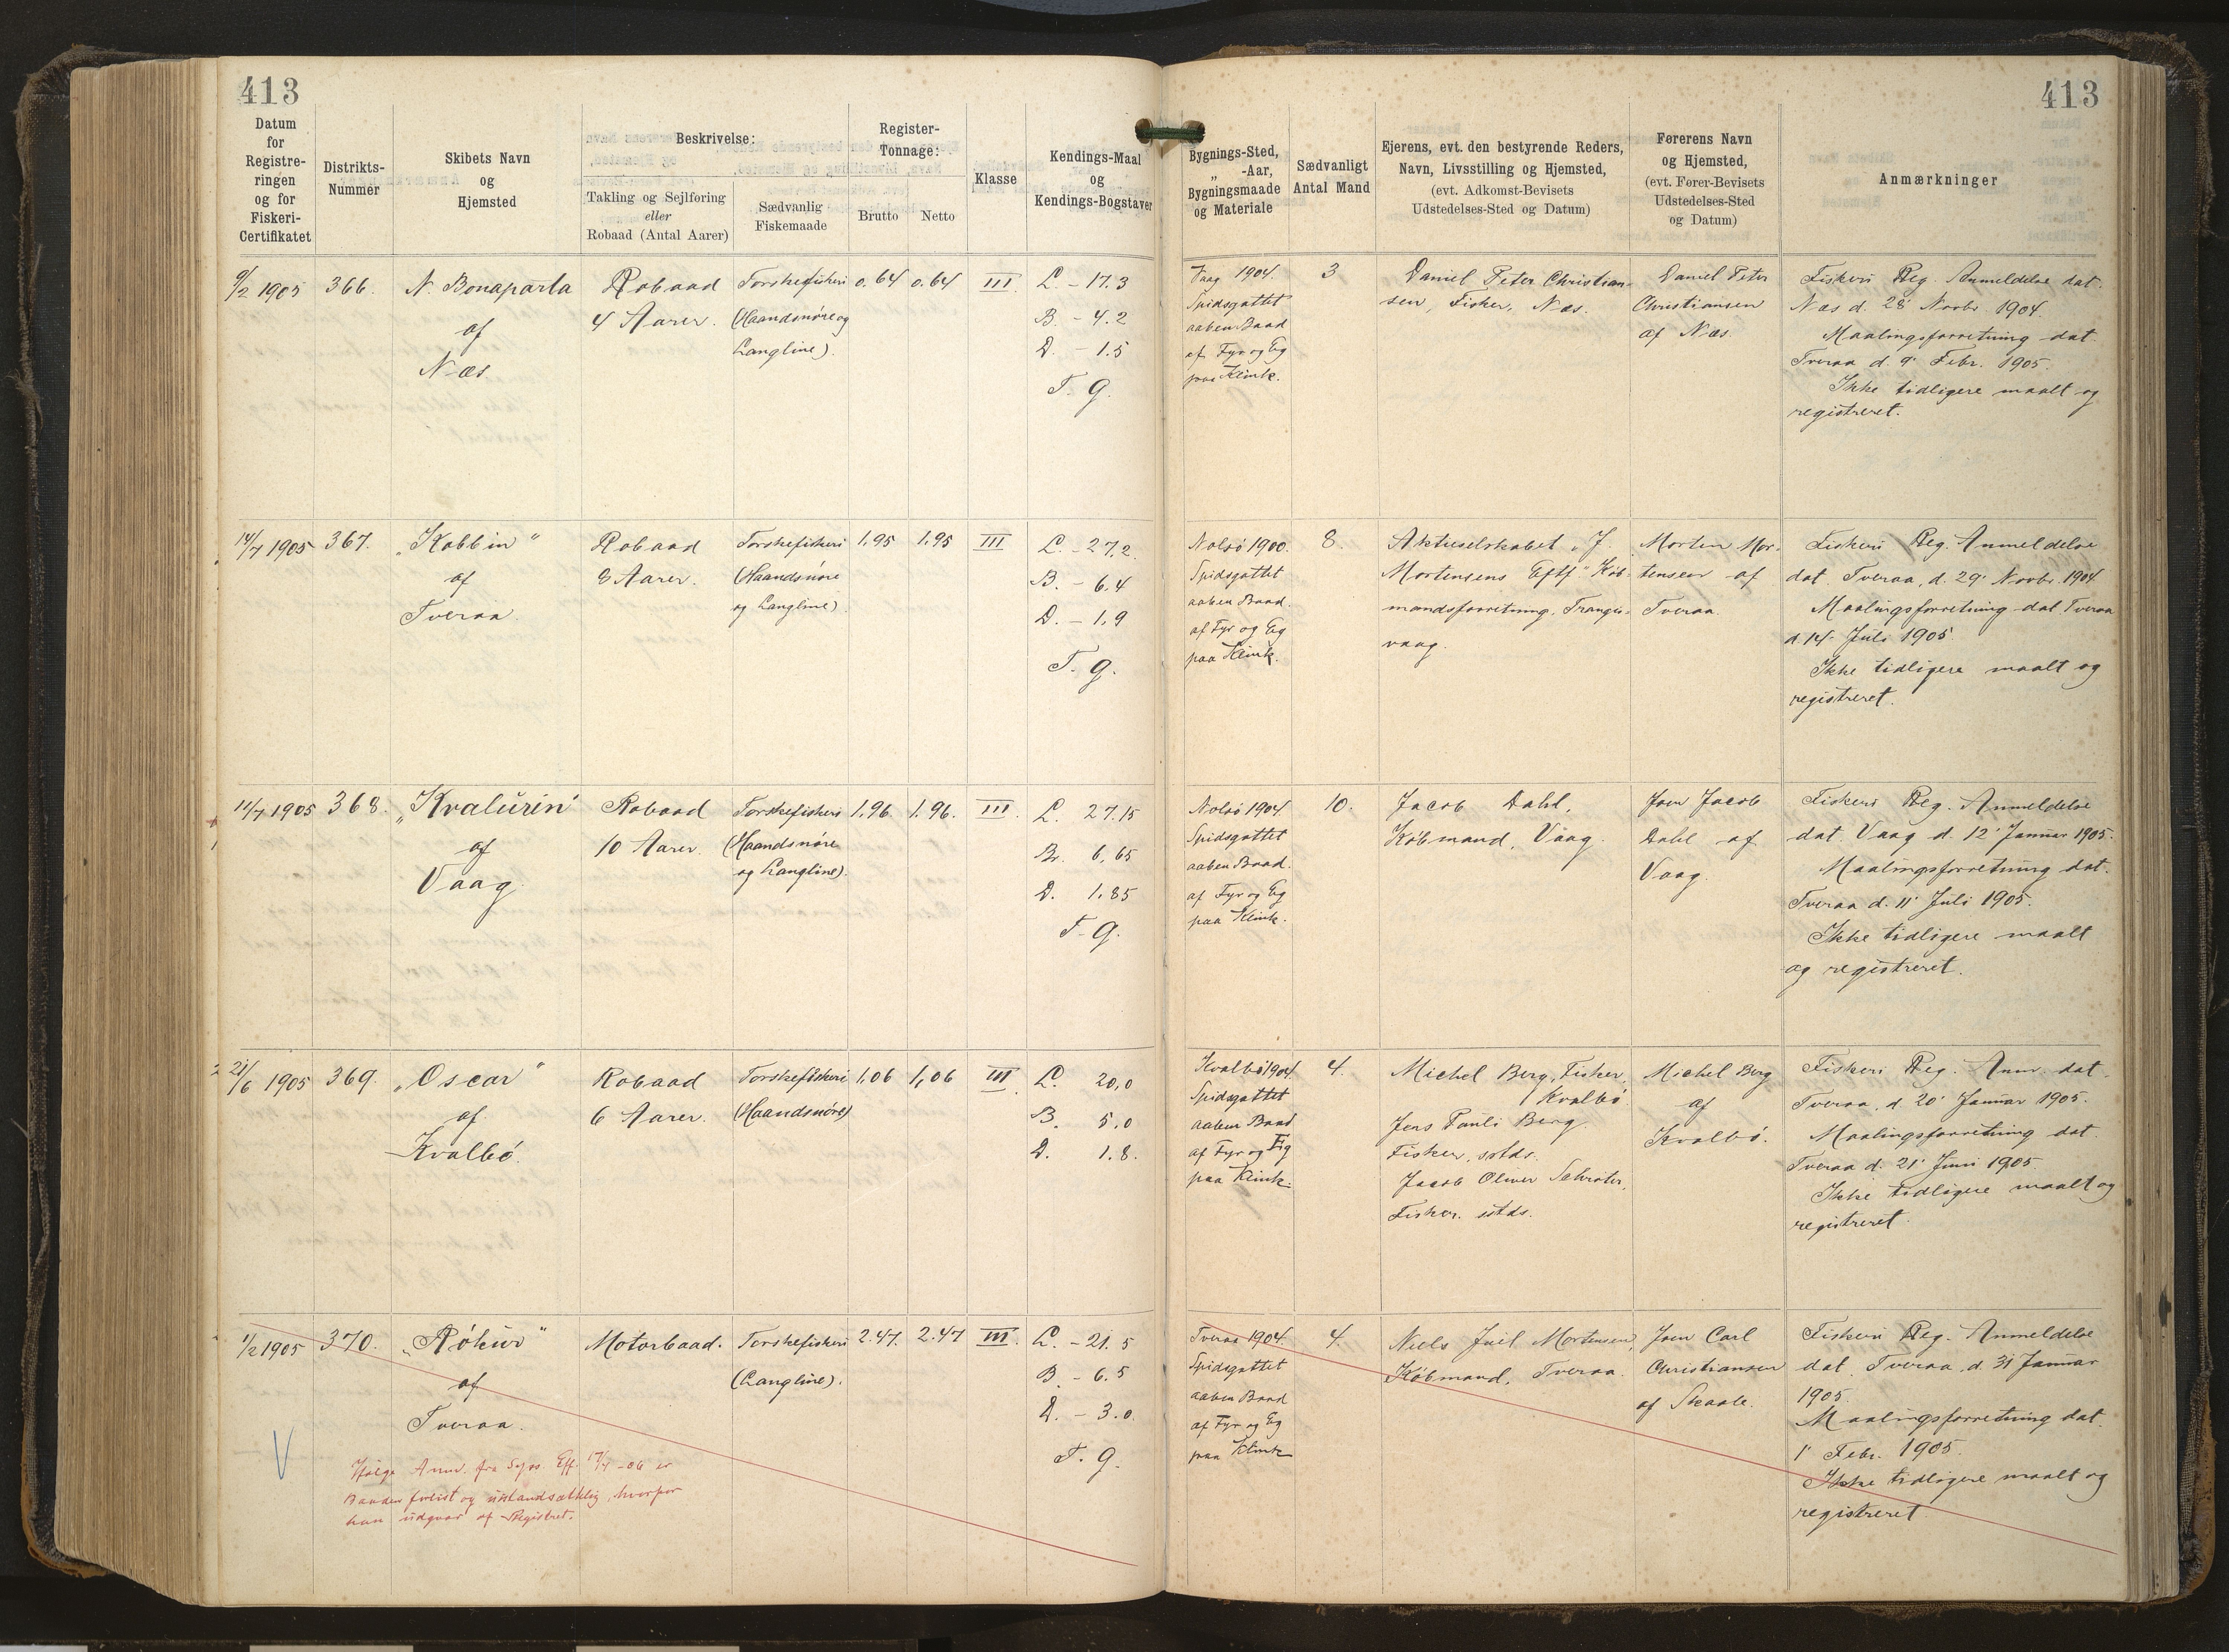 413
413
Datum
for
Registre-
ringen
og for
Fiskeri-
Certifikatet
Distrikts-
Nummer
Skibets Navn
og
Hjemsted
Beskrivelse:
Takling og Sejlføring
eller
Robaad (Antal Aarer)
Sædvanlig
Fiskemaade
Register-
Tonnage:
Brutto
Netto
Klasse
Kendings-Maal
og
Kendings-Bogstaver
Bygnings-Sted,
„ -Aar,
Bygningsmaade
og Materiale
Sædvanligt
Antal Mand
Ejerens, evt. den bestyrende Reders,
Navn, Livsstilling og Hjemsted,
(evt. Adkomst-Bevisets
Udstedelses-Sted og Datum)
Førerens Navn
og Hjemsted,
(evt. Fører-Bevisets
Udstedelses-Sted
og Datum)
Anmærkninger
9/2 1905
366.
N. Bonaparta
af
Næs
Robaad
4 Aarer.
Torskefiskeri
(Haandsnøre og
Langline).
0.64
0.64
III.
L. - 17.3
B. - 4.2
D. - 1.5
T. G.
Vaag 1904.
Spidsgattet
aaben Baad
af Fyr og Eg
paa Klink.
3
Daniel Peter Christian-
sen, Fisker, Næs.
Daniel Peter
Christiansen
af Næs.
Fiskeri Reg. Anmeldelse dat.
Næs d. 28' Novbr. 1904.
Maalingsforretning dat.
Tveraa d. 9' Febr. 1905.
Ikke tidligere maalt og
registreret.
14/7 1905
367.
„Kobbin"
af
Tveraa.
Robaad
8 Aarer.
Torskefiskeri
(Haandsnøre
og Langline).
1,95
1,95
III
L. - 27,2.
B. - 6,4
D. - 1,9
T. G.
Nolsö 1900.
Spidsgattet
aaben Baad.
af Fyr og Eg
paa Klink.
8.
Aktieselskabet „J.
Mortensens Eftf" Køb-
mandsforretning, Trangis-
vaag.
Morten Mor-
tensen af
Tveraa.
Fiskeri Reg. Anmeldelse
dat. Tveraa, d. 29' Novbr. 1904
Maalingsforretning dat. Tveraa
d. 14' Juli 1905.
Ikke tidligere maalt og
registreret.
11/7 1905
368.
„Kvalurin"
af
Vaag.
Robaad
10 Aarer.
Torskefiskeri
(Haandsnøre
og Langline).
1,96
1.96.
III.
L. 27.15
Br. 6,65
D. 1,85
T. G.
Nolsö 1904.
Spidsgattet
aaben Baad.
af Fyr og Eg
paa Klink.
10.
Jacob Dahl,
Købmand, Vaag.
Joen Jacob
Dahl af
Vaag.
Fiskeri Reg. Anmeldelse
dat. Vaag d. 12' Januar 1905.
Maalingsforretning dat.
Tveraa d. 11' Juli 1905.
Ikke tidligere maalt
og registreret.
21/6 1905
369.
„Oscar"
af
Kvalbö.
Robaad
6 Aarer.
Torskefiskeri
(Haandsnøre)
1,06
1,06
III.
L. 20,0
B. 5,0
D. 1.8.
Kvalbö 1904.
Spidsgattet
aaben Baad
af Fyr og Eg
paa Klink.
4.
Michel Berg, Fisker,
Kvalbö.
Jens Pauli Berg.
Fisker, sstds.
Jacob Oliver Schrøter,
Fisker. sstds.
Michel Berg
af
Kvalbö.
Fiskeri Reg. Anm. dat.
Tveraa, d. 20' Januar 1905.
Maalingsforretning dat.
Tveraa d. 21' Juni 1905.
Ikke tidligere maalt og
registreret.
1/2 1905
370.
„Rökur"
af
Tveraa.
Motorbaad.
Torskefiskeri
(Langline).
2.47.
2.47
III.
L. - 21.5
B. - 6.5
D. - 3.0.
T. G.
Tveraa 1904.
Spidsgattet
aaben Baad
af Fyr og Eg
paa Klink
4.
Niels Juel Mortensen,
Købmand, Tveraa.
Joen Carl
Christiansen
af Skaale.
Fiskeri Reg. Anmeldelse
dat. Tveraa, d. 31' Januar
1905.
Maalingsforretning dat.
1' Febr. 1905.
Ikke tidligere maalt og
registreret
Ifølge Anm. fra Syss. Eft. 17/4 - 06 er
Baaden forlist og uistandsættelig, hvorfor
han udgaar af Registret.